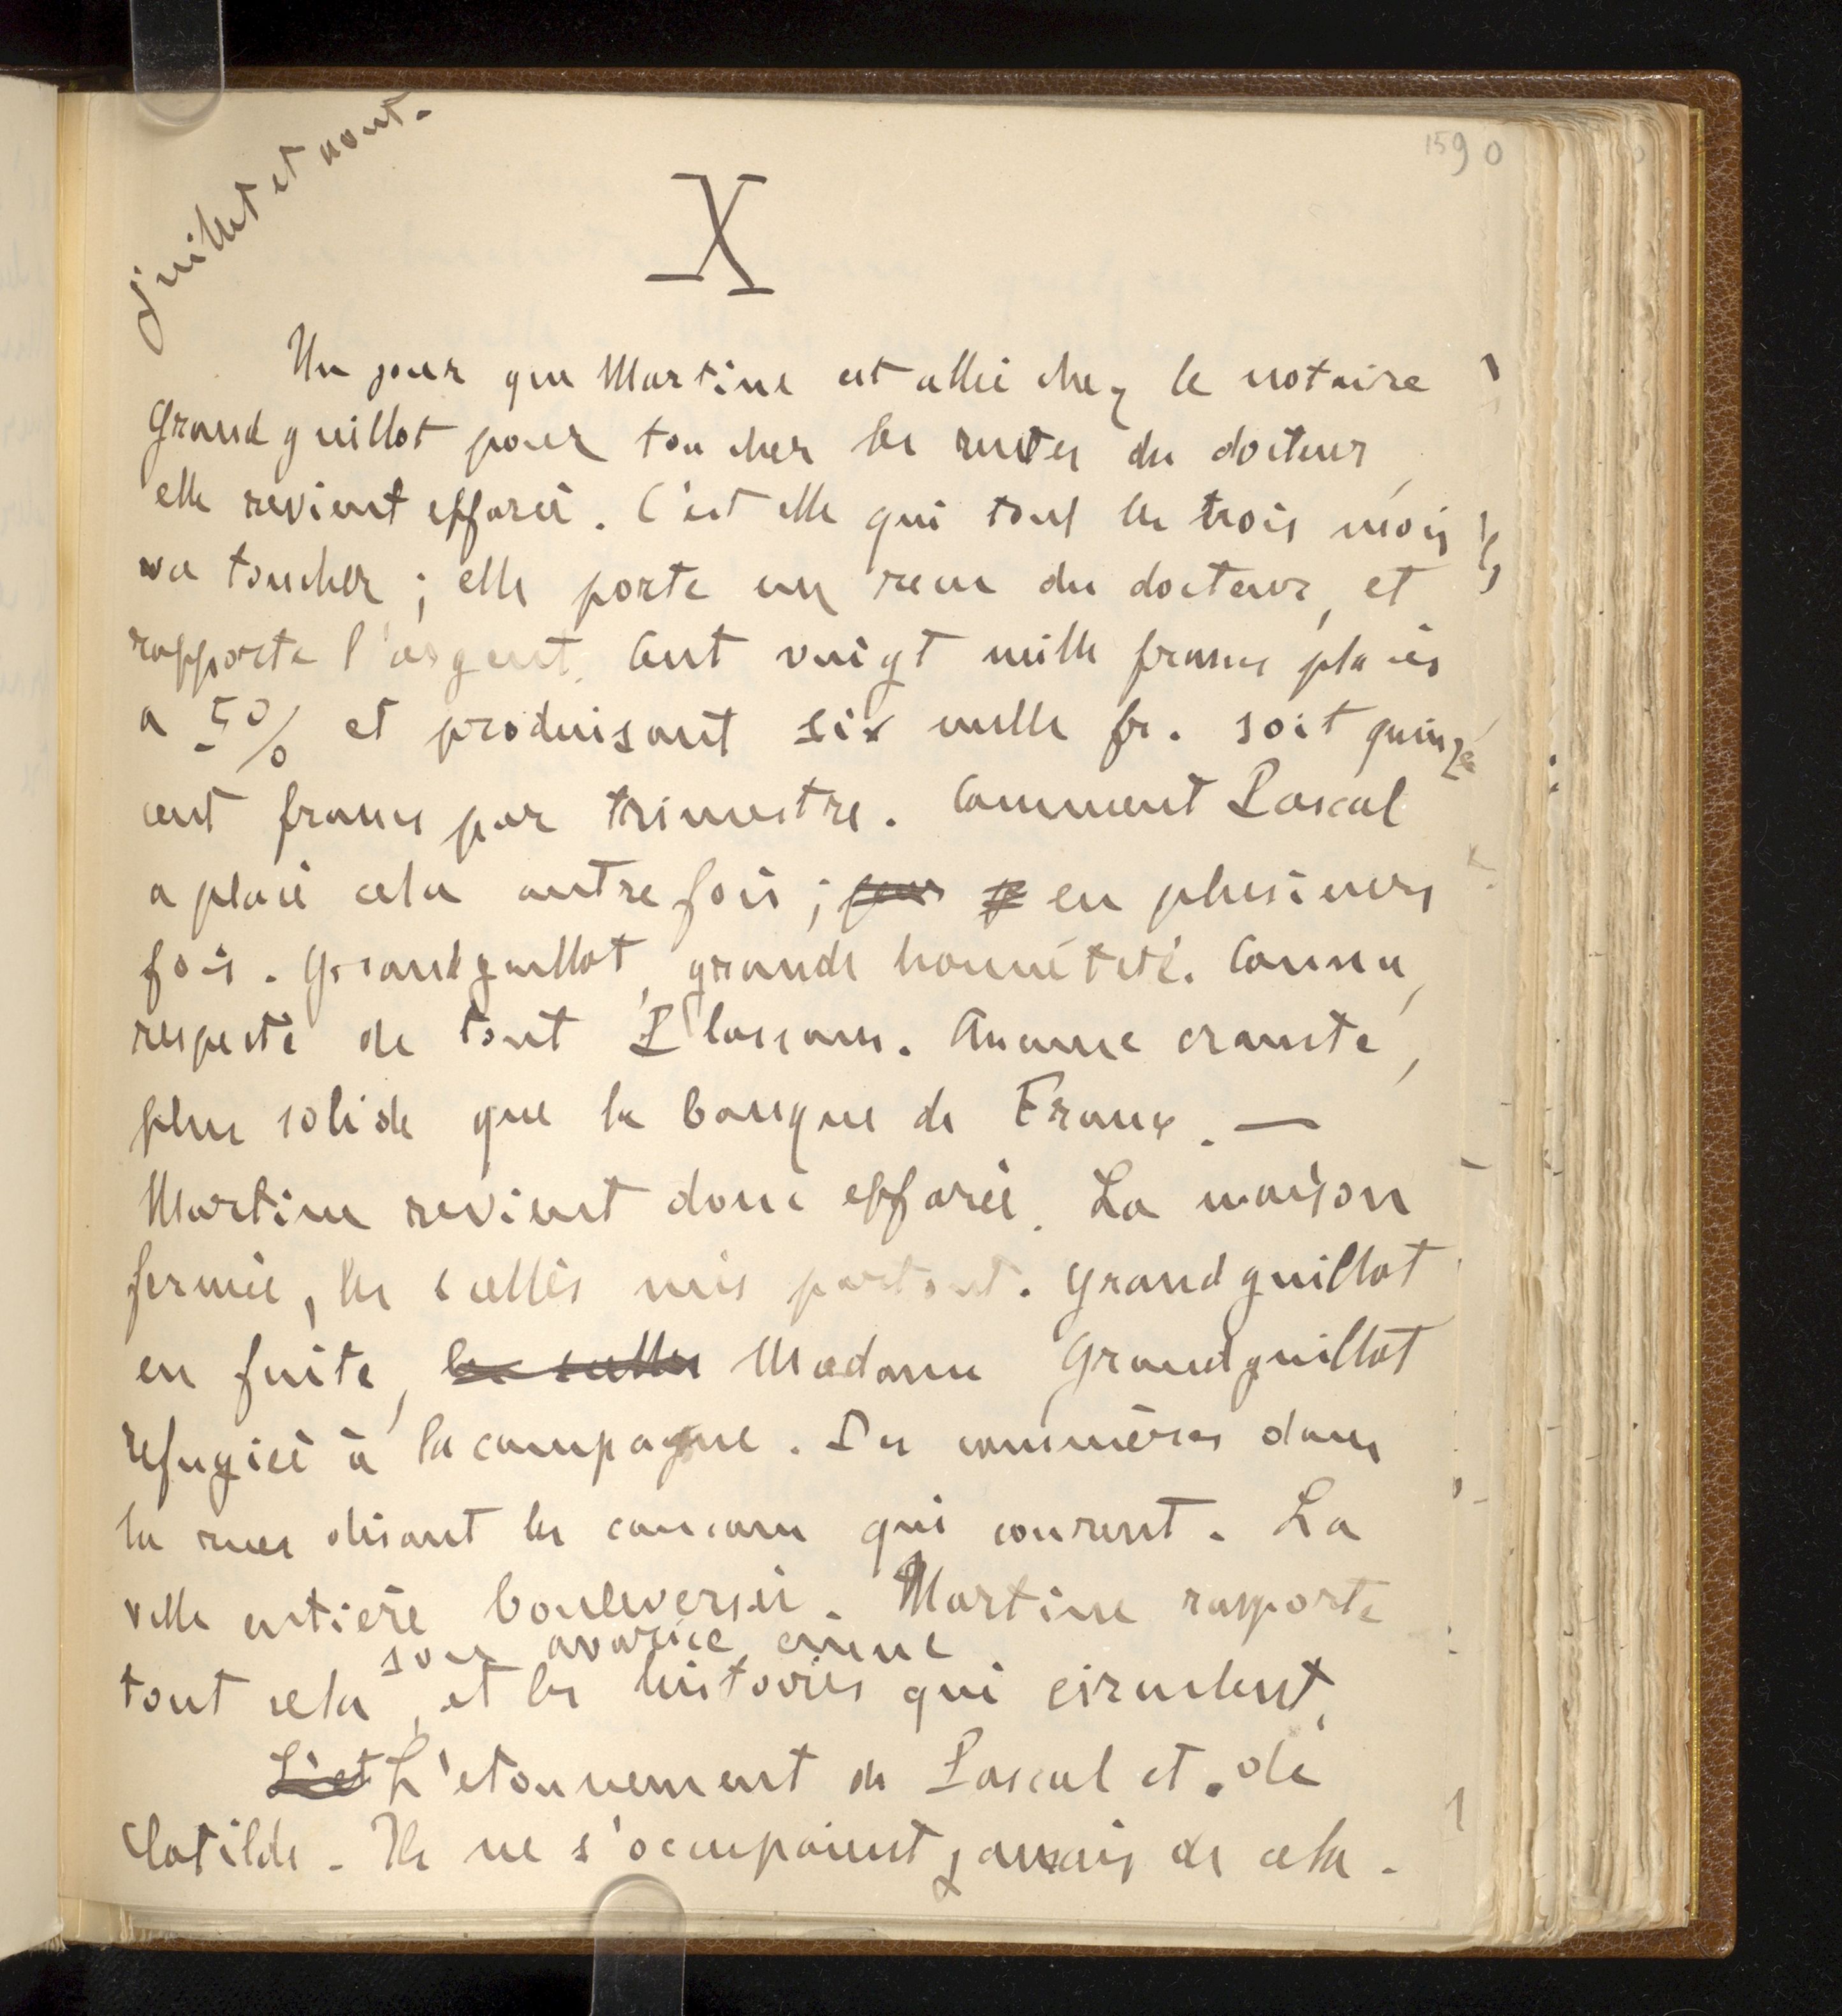 juillet et aout.
1590
X
Un jour que Martine est allée chez le notaire
Grandguillot pour toucher les rentes du docteur,
elle revient effarée. C'est elle qui tous les trois mois
va toucher ; elle porte un recu du docteur, et
rapporte l'argent. Cent vingt mille francs placés
a 5% et produisant six mille fr. soit quinze
cent francs par trimestre. Comment Pascal
a placé cela autrefois ; en plusieurs
fois. Grandguillot, grande honnêteté. Connu,
respecté de tout Plassans. Aucune crainte,
plus solide que la banque de France. —
Martine revient donc effarée. La maison
fermée, les scellés mis partout. Grandguillot
en fuite, les scellés Madame Grandguillot
refugiée à la campagne. Des commères dans
la rues disant les cancans qui courent. La
ville entière bouleversée. Martine rapporte
son avarice émue
tout cela, et les histoires qui circulent.
L'et L'etonnement de Pascal et de
Clotilde. Ils ne s'occupaient jamais de cela.